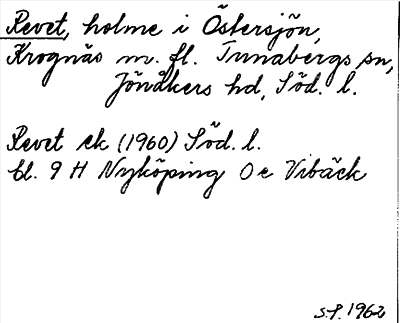 Revet, holme i Östersjön,
Krognäs m. fl. Tunabergs sn,
Jönåkers hd, Söd. l.
Revet ek (1960) Söd. l.
bl. 9 H Nyköping 0 e Vibäck
S.P. 1962